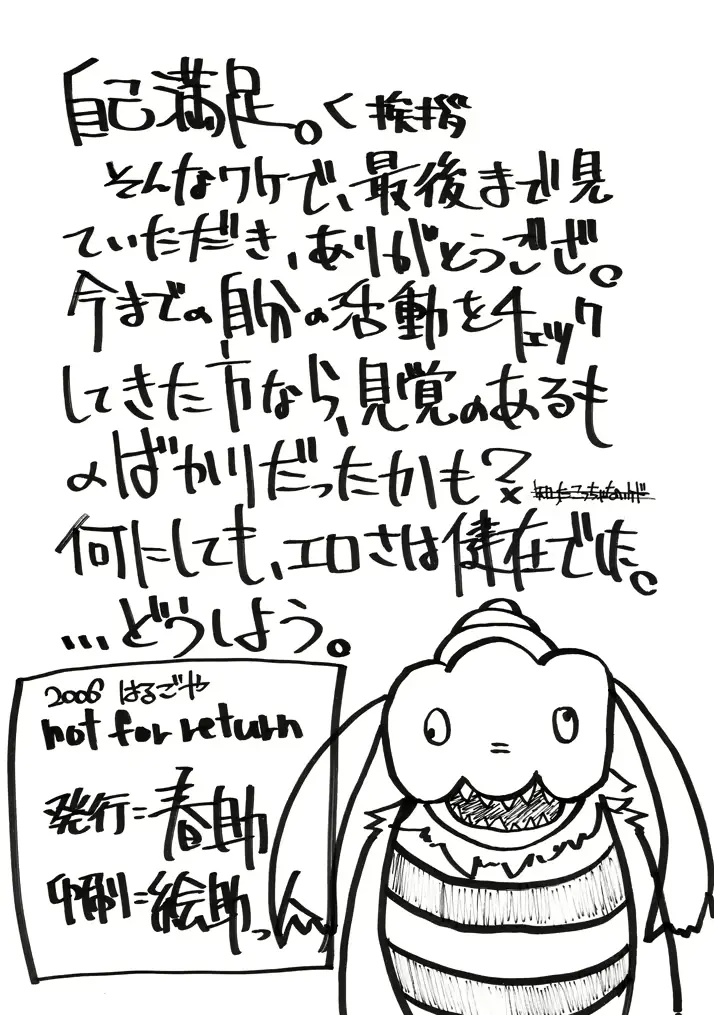 自己満足。く挨拶
そんなワケで、最後まで見
ていただき、ありがとうござ。
今までの自分の活動をチェック
してきた方なら、見覚のあるも
のばかりだったかも?
何にしても、エロさは健在でした。
…どうしよう。
2006 はるごや
not for return
発行=春助
印刷=絵助っ人